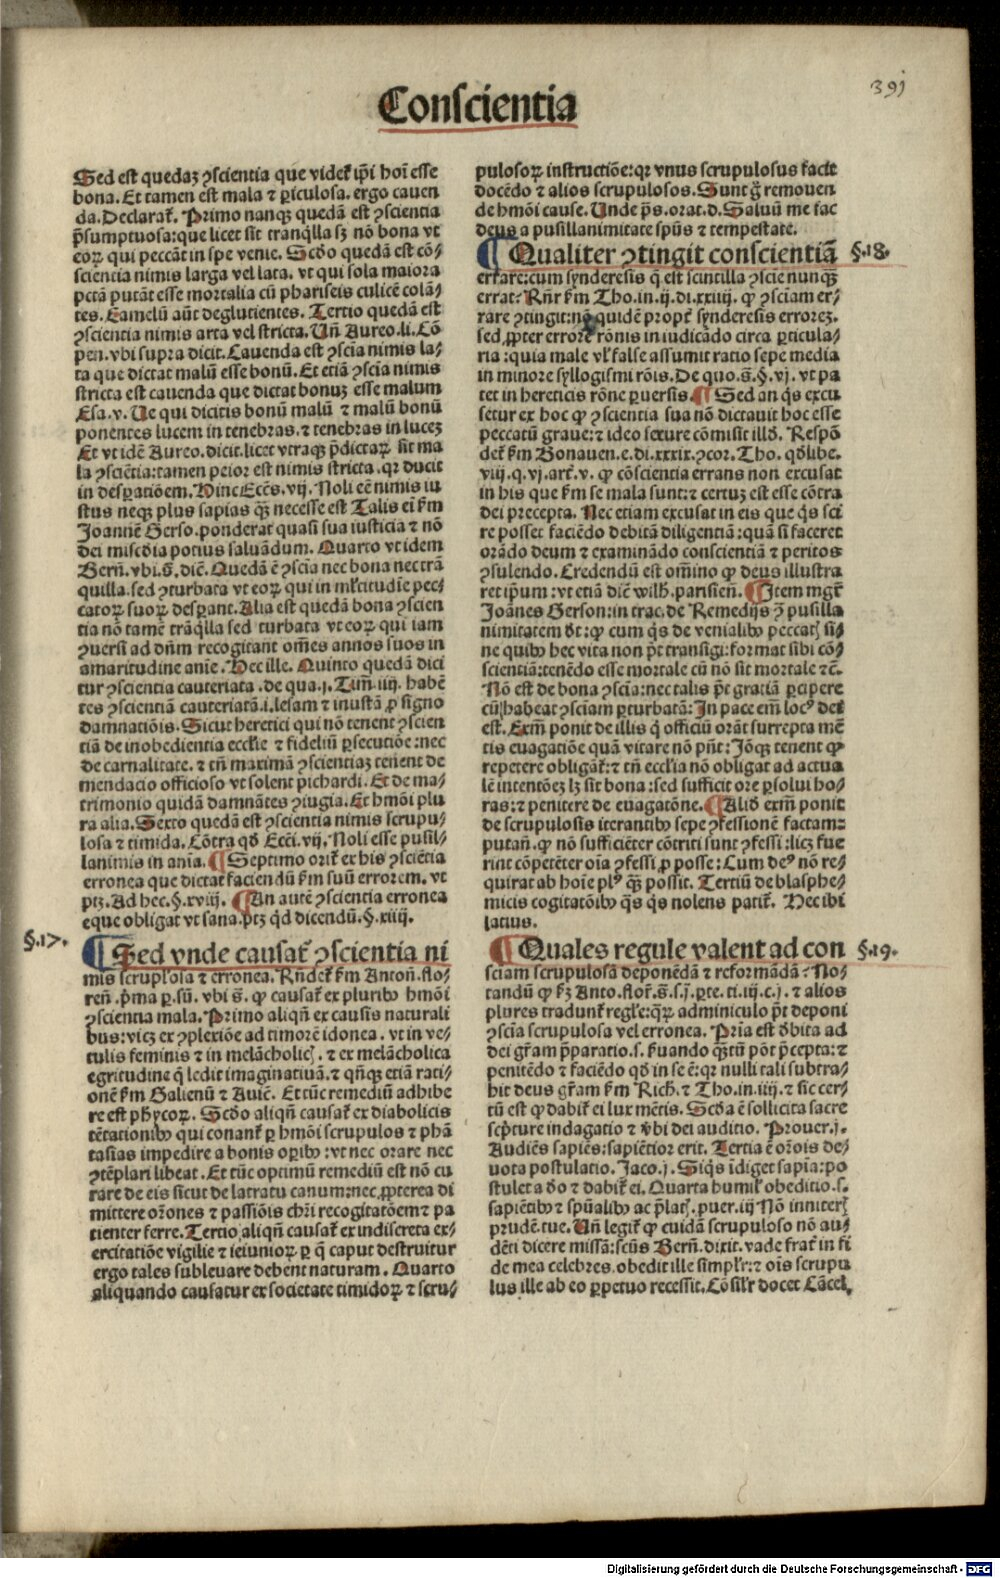 391
Conscientia
Sed est quedaꝫ ꝯscientia que videt᷑ ip̄i hoi᷒ esse
bona. Et tamen est mala ⁊ ꝑiculosa. ergo cauen
da. Declarat᷑. Primo nanqꝫ quedā est ꝯscientia
p̄sumptuosa: que licet sit tranq̄lla sꝫ nō bona vt
eoꝝ qui peccāt in spe venie. Scd̄o quedā est cō-
scientia nimis larga vel lata. vt qui sola maiora
pctā putāt esse mortalia cū phariseis culicē colā-
tes. Camelū aūt deglutientes. Tertio quedā est
ꝯscientia nimis arta vel stricta. Un̄ Aureo. li. Cō
pen. vbi supra dicit. Cauenda est ꝯscīa nimis la-
ta que dictat malū esse bonū. Et etiā ꝯscīa nimis
stricta est cauenda que dictat bonuꝫ esse malum
Esa. v. Ue qui dicitis bonū malū ⁊ malū bonū
ponentes lucem in tenebras. ⁊ tenebras in luceꝫ
Et vt idē Aureo. dicit. licet vtraqꝫ p̄dictaꝝ sit ma
la ꝯsciētia: tamen peior est nimis stricta. qꝛ ducit
in desꝑatiōem. Hinc Eccēs. vij. Noli eē nimis iu
stus neqꝫ plus sapias qꝫ̄ necesse est Talis ei᷒ ẜm
Joannē Gerso. ponderat quasi sua iusticia ⁊ nō
dei miscd̄ia potius saluādum. Quarto vt idem
Bern̄. vbi. s̄. dic̄. Quedā ē ꝯscīa nec bona nec trā
quilla. sed ꝯturbata vt eoꝝ qui in mltitudīe pec-
catoꝝ suoꝝ desꝑant. Alia est quedā bona ꝯscien
tia nō tamē trāq̄lla sed turbata vt eoꝝ qui iam
ꝯuersi ad dn̄m recogitant om̄es annos suos in
amaritudine anīe. Hec ille. Quinto quedā dici
tur ꝯscientia cauteriata. de qua. j. Tim̄. iiij. habē
tes ꝯscientiā cauteriatā. i. lesam ⁊ inustā ꝓ signo
damnatiōis. Sicut heretici qui nō tenent ꝯscien
tiā de inobedientia eccl̄ie ⁊ fideliū ꝑsecutiōe: nec
de carnalitate. ⁊ tn̄ maximā ꝯscientiaꝫ tenent de
mendacio officioso vt solent pichardi. Et de ma-
trimonio quidā damnātes ꝯiugia. Et hmōi plu
ra alia. Sexto quedā est ꝯscientia nimis scrupu-
losa ⁊ timida. Cōtra qd̄ Ecc̄i. vij. Noli esse pusil-
lanimis in anīa. ¶ Septimo orit᷑ ex his ꝯsciētia
erronea que dictat faciendū ẜm suū errorem. vt
ptꝫ. Ad hec. §. xviij. ¶ An autē ꝯscientia erronea
eque obligat vt sana. ptꝫ qd dicendū. §. xiiij.
§.17. ¶ Sed vnde causat᷑ ꝯscientia ni
mis scrupl̓osa ⁊ erronea. Rn̄det᷑ ẜm Anton̄. flo-
ren̄. p̄ma ꝑ. sū. vbi s̄. ꝙ causat᷑ ex pluribꝰ hmōi
ꝯscientia mala. Primo aliqn̄ ex causis naturali
bus: vicꝫ ex ꝯplexiōe ad timorē idonea. vt in ve-
tulis feminis ⁊ in melācholic̄. ⁊ ex melācholica
egritudine q̄ ledit imaginatiuā. ⁊ qn̄qꝫ etiā rati-
onē ẜm Galienū ⁊ Auic̄. Et tūc remediū adhibe
re est phycoꝝ. Scd̄o aliqn̄ causat᷑ ex diabolicis
tētationibꝰ qui conant᷑ ꝑ hmōi scrupulos ⁊ phā
tasias impedire a bonis oꝑibꝰ: vt nec orare nec
ꝯtēplari libeat. Et tūc optimū remediū est nō cu
rare de eis sicut de latratu canum: nec ꝓpterea di
mittere orōnes ⁊ passiōis chr̄i recogitatōem ⁊ pa
tienter ferre. Tertio aliqn̄ causat᷑ ex indiscreta ex-
ercitatiōe vigilie ⁊ ieiunioꝝ ꝑ q̄ caput destruitur
ergo tales subleuare debent naturam. Quarto
aliquando causatur ex societate timidoꝝ ⁊ scru-
pulosoꝝ instructiōe: qꝛ vnus scrupulosus facit
docēdo ⁊ alios scrupulosos. Sunt g̊ remouen
de hmōi cause. Unde p̄s. orat. d. Saluū me fac
deus a pusillanimitate spūs ⁊ tempestate.
¶ Qualiter ꝯtingit conscientiā §.18.
errare: cum synderesis q̄ est scintilla ꝯscīe nunqꝫ̄
errat. Rn̄r ẜm Tho. in. ij. di. xxiiij. ꝙ ꝯsciam er-
rare ꝯtingit: nō quidē propt̄ synderesis erroreꝫ.
sed ꝓpter errorē rōnis in iudicādo circa ꝑticula-
ria: quia male vl̓ false assumit ratio sepe media
in minore syllogismi rōis. De quo. s̄. §. vj. vt pa
tet in hereticis rōne ꝑuersis. ¶ Sed an q̄s excu
setur ex hoc ꝙ ꝯscientia sua nō dictauit hoc esse
peccatū graue: ⁊ ideo secure cōmisit illd̄. Respō
det᷑ ẜm Bonauen. e. di. xxxix. ⁊ ꝯcor. Tho. qd̄libe.
viij. q. vj. art̄. v. ꝙ cōscientia errans non excusat
in his que ẜm se mala sunt: ⁊ certuꝫ est esse cōtra
dei precepta. Nec etiam excusat in eis que q̄s sci
re posset faciēdo debitā diligentiā: quā si faceret
orādo deum ⁊ examināndo conscientiā ⁊ peritos
ꝯsulendo. Credendū est om̄ino ꝙ deus illustra
ret ip̄um: vt etiā dic̄ wilh̄. parisien̄. ¶ Item mgr̄
Joānes Gerson: in trac. de Remedijs ꝯ̄ pusilla
nimitatem dt̄: ꝙ cum q̄s de venialibꝰ peccat̄ si-
ne quibꝰ hec vita non pt̄ transigi: format sibi cō-
scientiā: tenēdo esse mortale cū nō sit mortale ⁊c̄.
Nō est de bona ꝯscīa: nec talis pt̄ gratiā ꝑcipere
cū habeat ꝯsciam ꝑturbatā: In pace em̄ locꝰ dei
est. Exm̄ ponit de illis q̄ officiū orāt surrepta mē
tis euagatiōe quā vitare nō pn̄t: Jōqꝫ tenent ꝙ
repetere obligāt᷑: ⁊ tn̄ eccl̄ia nō obligat ad actua
lē intentōeꝫ lꝫ sit bona: sed sufficit ore ꝑsolui ho-
ras: ⁊ penitere de euagatōne. ¶ Alid̄ exm̄ ponit
de scrupulosis iterantibꝰ sepe ꝯfessionē factam:
putan̄. ꝙ nō sufficiēter cōtriti sunt ꝯfessi: licꝫ fue
rint cōpetēter oīa ꝯfessi ꝓ posse: Cum deꝰ nō re-
quirat ab hoīe plꝰ qꝫ̄ possit. Tertiū de blasphe-
micis cogitatōibꝰ q̄s q̄s nolens patit᷑. Hec ibi
latius.
¶ Quales regule valent ad con §.19.
sciam scrupulosā deponēdā ⁊ reformādā. No-
tandū ꝙ ẜꝫ Anto. flor̄. s̄. s. j. ꝑte. ti. iij. c. j. ⁊ alios
plures tradunt᷑ regl̓e: qꝝ adminiculo pt̄ deponi
ꝯscīa scrupulosa vel erronea. Prīa est d̄bita ad
dei gr̄am p̄paratio. s. ẜuando qꝫ̄tū pōt p̄cepta: ⁊
penitēdo ⁊ faciēdo qd̄ in se ē: qꝛ nulli tali subtra-
hit deus gr̄am ẜm Rich. ⁊ Tho. in. iiij. ⁊ sic cer-
tū est ꝙ dabit᷑ ei lux mētis. Scd̄a ē sollicita sacre
scp̄ture indagatio ⁊ v̄bi dei auditio. Prouer. j.
Audiēs sapiēs: sapiētior erit. Tertia ē orōis de-
uota postulatio. Jaco. j. Siq̄s īdiget sapīa: po
stulet a d̄o ⁊ dabit᷑ ei. Quarta humil̓ obeditio. s.
sapiētibꝰ ⁊ spūalibꝰ ac p̄lat̄. ꝓuer. iij Nō innitēr̄
prudē. tue. Un̄ legit᷑ ꝙ cuidā scrupuloso nō au-
dēti dicere missā: scūs Bern̄. dixit. vade frat̄ in fi
de mea celebres. obedit ille simpl̓r: ⁊ oīs scrupu
lus ille ab eo ꝑpetuo recessit. Cōsil̓r docet Cācel.
Digitalisierung gefördert durch die Deutsche Forschungsgemeinschaft - DFG